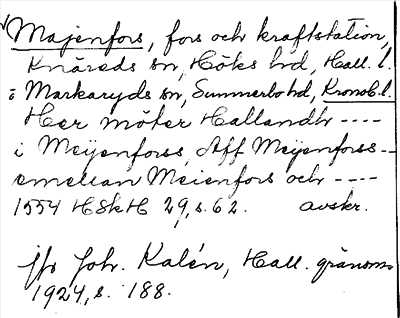 Majenfors, fors och kraftstation,
Knäreds sn, Höks hd, Hall. l.
i Markaryds sn, Sunnerbo hd, Kronob. l.
Her möter Hallandh ----
i Meÿenforss, Aff Meÿenforss --
emellan Meienfors och ----
1554 HSkH 29, s. 62. avskr.
jfr Joh. Kalén, Hall. gränsom
1924, s. 188.